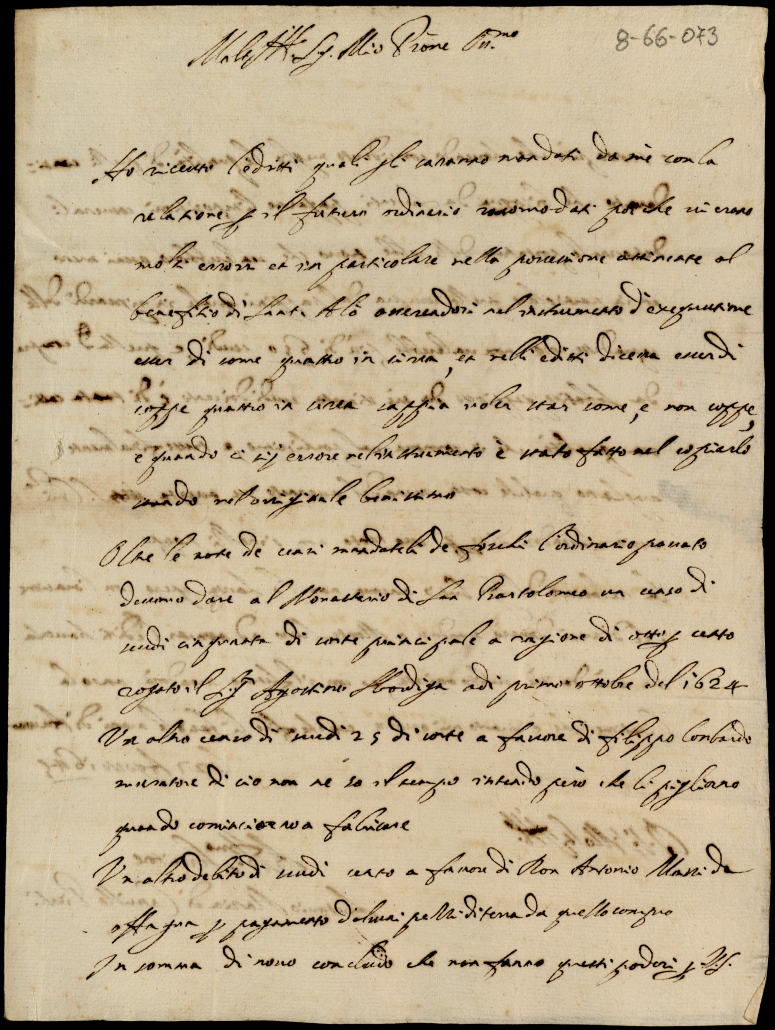 8-66-073
Molt Ill.re Sig. Mio Prone Oss.mo
Ho riceuto l'editti quali gli saranno mandati da mè con la
relatione p il futuro ordinario racomodati poi che vi erano
molti errori et in particolare nella porcissione attinente al
benefitio di Santa Alò asserendosi nel instrumento d'exequutione
esser di some quattro in circa, et nelli editti diceua esser di
coppe quattro in circa sappia uoler star some, e non coppe,
e quando ci sij errore nel instrumento è stato fatto nel copiarlo
stando nel originale benissimo
Oltre le note de censi mandateli de foschi l'ordinario passato
deuono dare al Monasterio di San Bartolomeo un censo di
scudi cinquanta di sorte principale a ragione di otto p cento
rogato il Sig.r Agostino adi primo ottobre del 1624
Un altro censo di scudi 25 di sorte a fauore di filippo lombardo
muratore di cio non ne so il tempo intendo però che li pigliorno
quando cominciorno a fabricare
Un altro debito di scudi cento a fauore di Don Antonio Massi da
offagna p pagamento d'alcuni pezzi di terra da quello compro
In somma di nouo concludo che non fanno questi poderi p V.S.